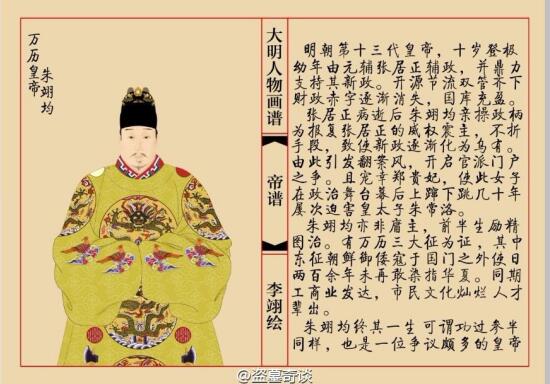 万历皇帝
朱翊钧
大明人物画谱
帝谱
李翊绘
明朝第十三代皇帝，十岁登极
幼年由元辅张居正辅政，并鼎力
支持其新政。开源节流双管齐下
财政赤字逐渐消失，国库充盈。
张居正病逝后朱翊钧亲操政柄
为报复张居正的威权震主，不折
手段，致使新政逐渐化为乌有。
由此引发翻案风，开启官派门户
之争。且宠幸郑贵妃，使此女子
在政治舞台幕后上蹿下跳几十年
屡次迫害皇太子朱常洛。
朱翊钧亦非庸主，前半生励精
图治。有万历三大征为证，其中
东征朝鲜御倭寇于国门之外使日
两百余年未再敢染指华夏。同期
工商业发达，市民文化灿烂人才
辈出。
朱翊钧终其一生可谓功过参半
同样，也是一位争议颇多的皇帝
@盗墓奇谈